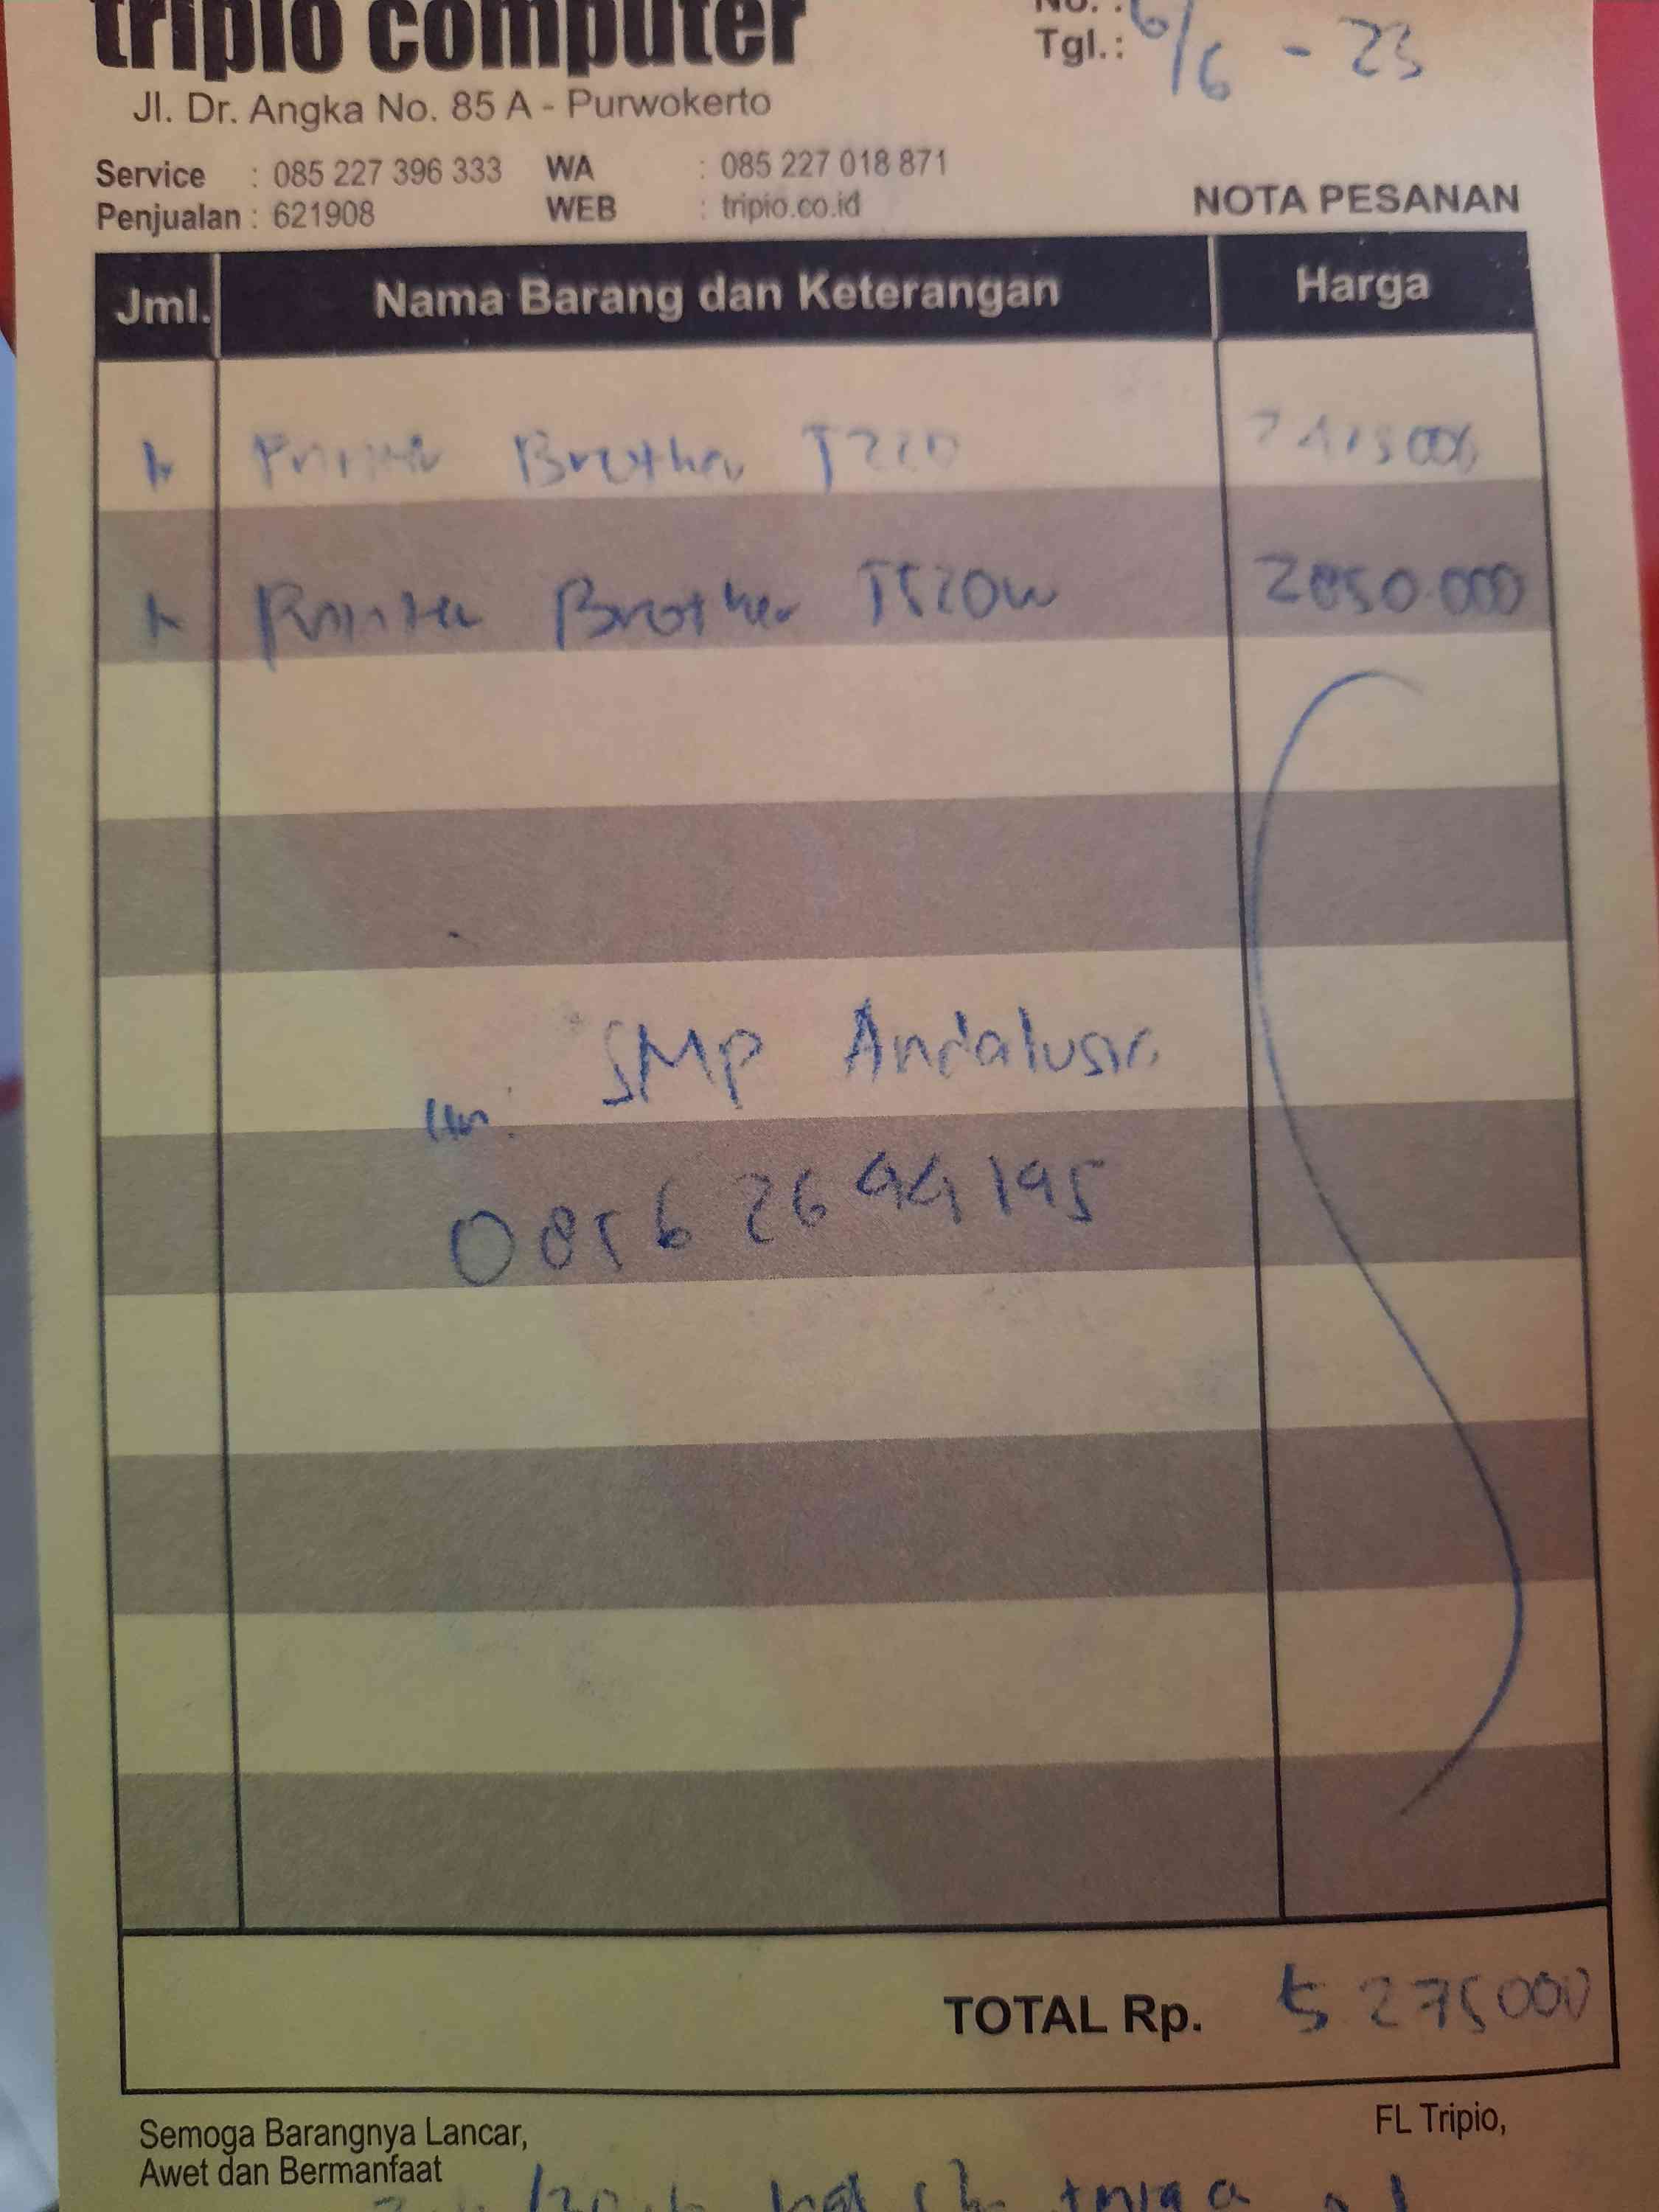 tripio computer
No. :
Tgl.: 6/6 - 23
Jl. Dr. Angka No. 85 A - Purwokerto
Service : 085 227 396 333 WA : 085 227 018 871
Penjualan : 621908 WEB : tripio.co.id
NOTA PESANAN
Jml. Nama Barang dan Keterangan Harga
Printer Brother T220
Printer Brother T520W 2850.000
SMP Andalusia
TOTAL Rp. 5275000
Semoga Barangnya Lancar,
Awet dan Bermanfaat
FL Tripio,